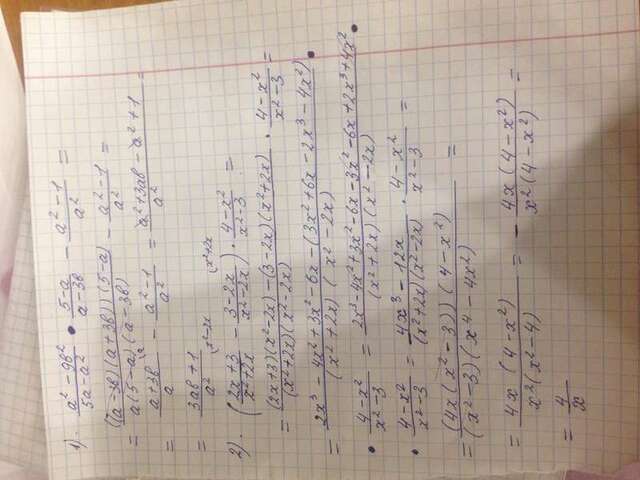 1). (a² - 9b²)/(5a - a²) • (5-a)/(a-3b) - (a² - 1)/a² =
= ((a-3b)(a+3b))(5-a)/(a(5-a)(a-3b)) - (a²-1)/a² =
= (a+3b)/a \a - (a²-1)/a² = (a²+3ab - a²+1)/a² =
= (3ab+1)/a²
2). ((2x+3)/(x²+2x) \x²-2x - (3-2x)/(x²-2x) \x²+2x) · (4-x²)/(x²-3) =
= ((2x+3)(x²-2x) - (3-2x)(x²+2x))/((x²+2x)(x²-2x)) · (4-x²)/(x²-3) =
= (2x³ - 4x² + 3x² - 6x - (3x² + 6x - 2x³ - 4x²))/((x²+2x)(x²-2x)) •
• (4-x²)/(x²-3) = (2x³-4x²+3x²-6x-3x²-6x+2x³+4x²)/((x²+2x)(x²-2x)) •
• (4-x²)/(x²-3) = (4x³-12x)/((x²+2x)(x²-2x)) · (4-x²)/(x²-3) =
= (4x(x²-3))(4-x²)/((x²-3)(x⁴-4x²)) =
= 4x(4-x²)/(x²(x²-4)) = - 4x(4-x²)/(x²(4-x²)) =
= 4/x